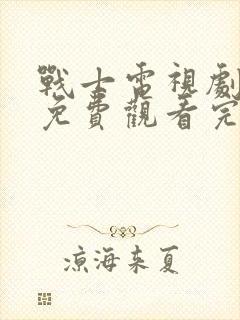 戰士電視劇
免費觀看完
涼海來夏